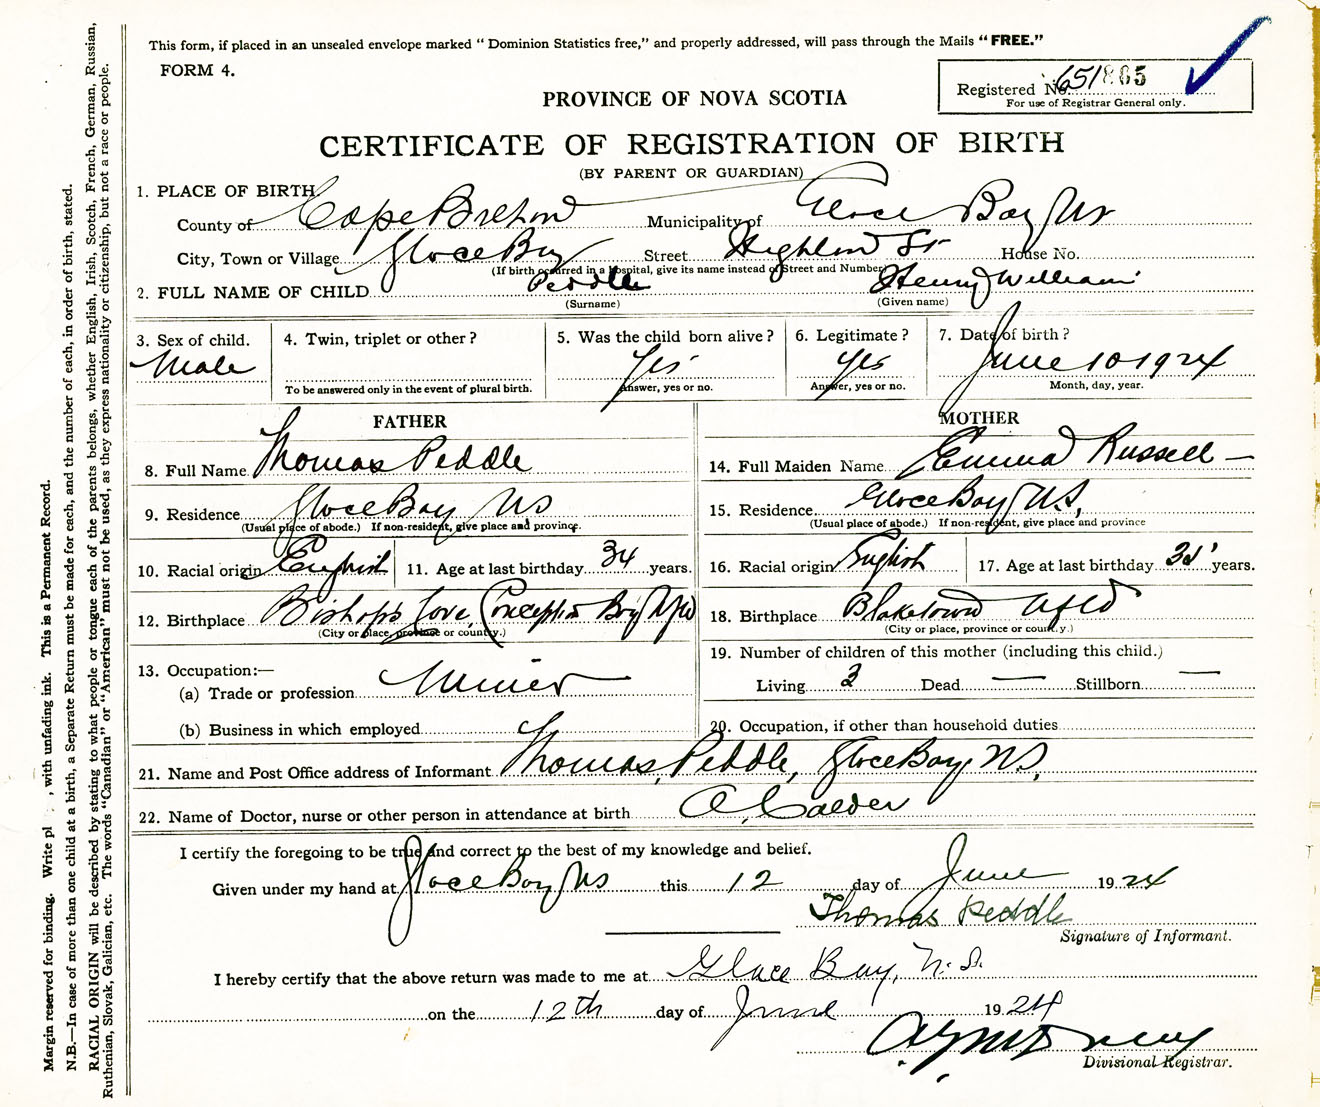 This form, if placed in an unsealed envelope marked “ Dominion Statistics free,” and properly addressed, will pass through the Mails “ FREE.”
FORM 4.
Registered No. 651865
For use of Registrar General only.
PROVINCE OF NOVA SCOTIA
CERTIFICATE OF REGISTRATION OF BIRTH
(BY PARENT OR GUARDIAN)
1. PLACE OF BIRTH
County of Cape Breton Municipality of Glace Bay NS
City, Town or Village Glace Bay Street Highland St House No.
(If birth occurred in a hospital, give its name instead of Street and Number)
2. FULL NAME OF CHILD Peddle Henry William
(Surname) (Given name)
3. Sex of child. 4. Twin, triplet or other? 5. Was the child born alive? 6. Legitimate? 7. Date of birth?
Male Yes Yes June 10 1924
To be answered only in the event of plural birth. Answer, yes or no. Answer, yes or no. Month, day, year.
FATHER
8. Full Name Thomas Peddle
9. Residence Glace Bay NS
(Usual place of abode.) If non-resident, give place and province.
10. Racial origin English 11. Age at last birthday 34 years.
12. Birthplace Bishop's Cove, Conception Bay Nfld
(City or place, province or country.)
13. Occupation:—
(a) Trade or profession Miner
(b) Business in which employed
MOTHER
14. Full Maiden Name Emma Russell —
15. Residence Glace Bay N.S,
(Usual place of abode.) If non-resident, give place and province
16. Racial origin English 17. Age at last birthday years.
18. Birthplace Blaketown Nfld
(City or place, province or country.)
19. Number of children of this mother (including this child.)
Living 3 Dead — Stillborn —
20. Occupation, if other than household duties
21. Name and Post Office address of Informant Thomas Peddle, Glace Bay, N.S,
22. Name of Doctor, nurse or other person in attendance at birth A. Calder
I certify the foregoing to be true and correct to the best of my knowledge and belief.
Given under my hand at Glace Bay NS this 12 day of June 1924
Thomas Peddle
Signature of Informant.
I hereby certify that the above return was made to me at Glace Bay, N.S.
on the 12th day of June 1924
Divisional Registrar.
Margin reserved for binding. Write pl , with unfading ink. This is a Permanent Record.
N.B.—In case of more than one child at a birth, a Separate Return must be made for each, and the number of each, in order of birth, stated.
RACIAL ORIGIN will be described by stating to what people or tongue each of the parents belongs, whether English, Irish, Scotch, French, German, Russian,
Ruthenian, Slovak, Galician, etc. The words “Canadian” or “American” must not be used, as they express nationality or citizenship, but not a race or people.